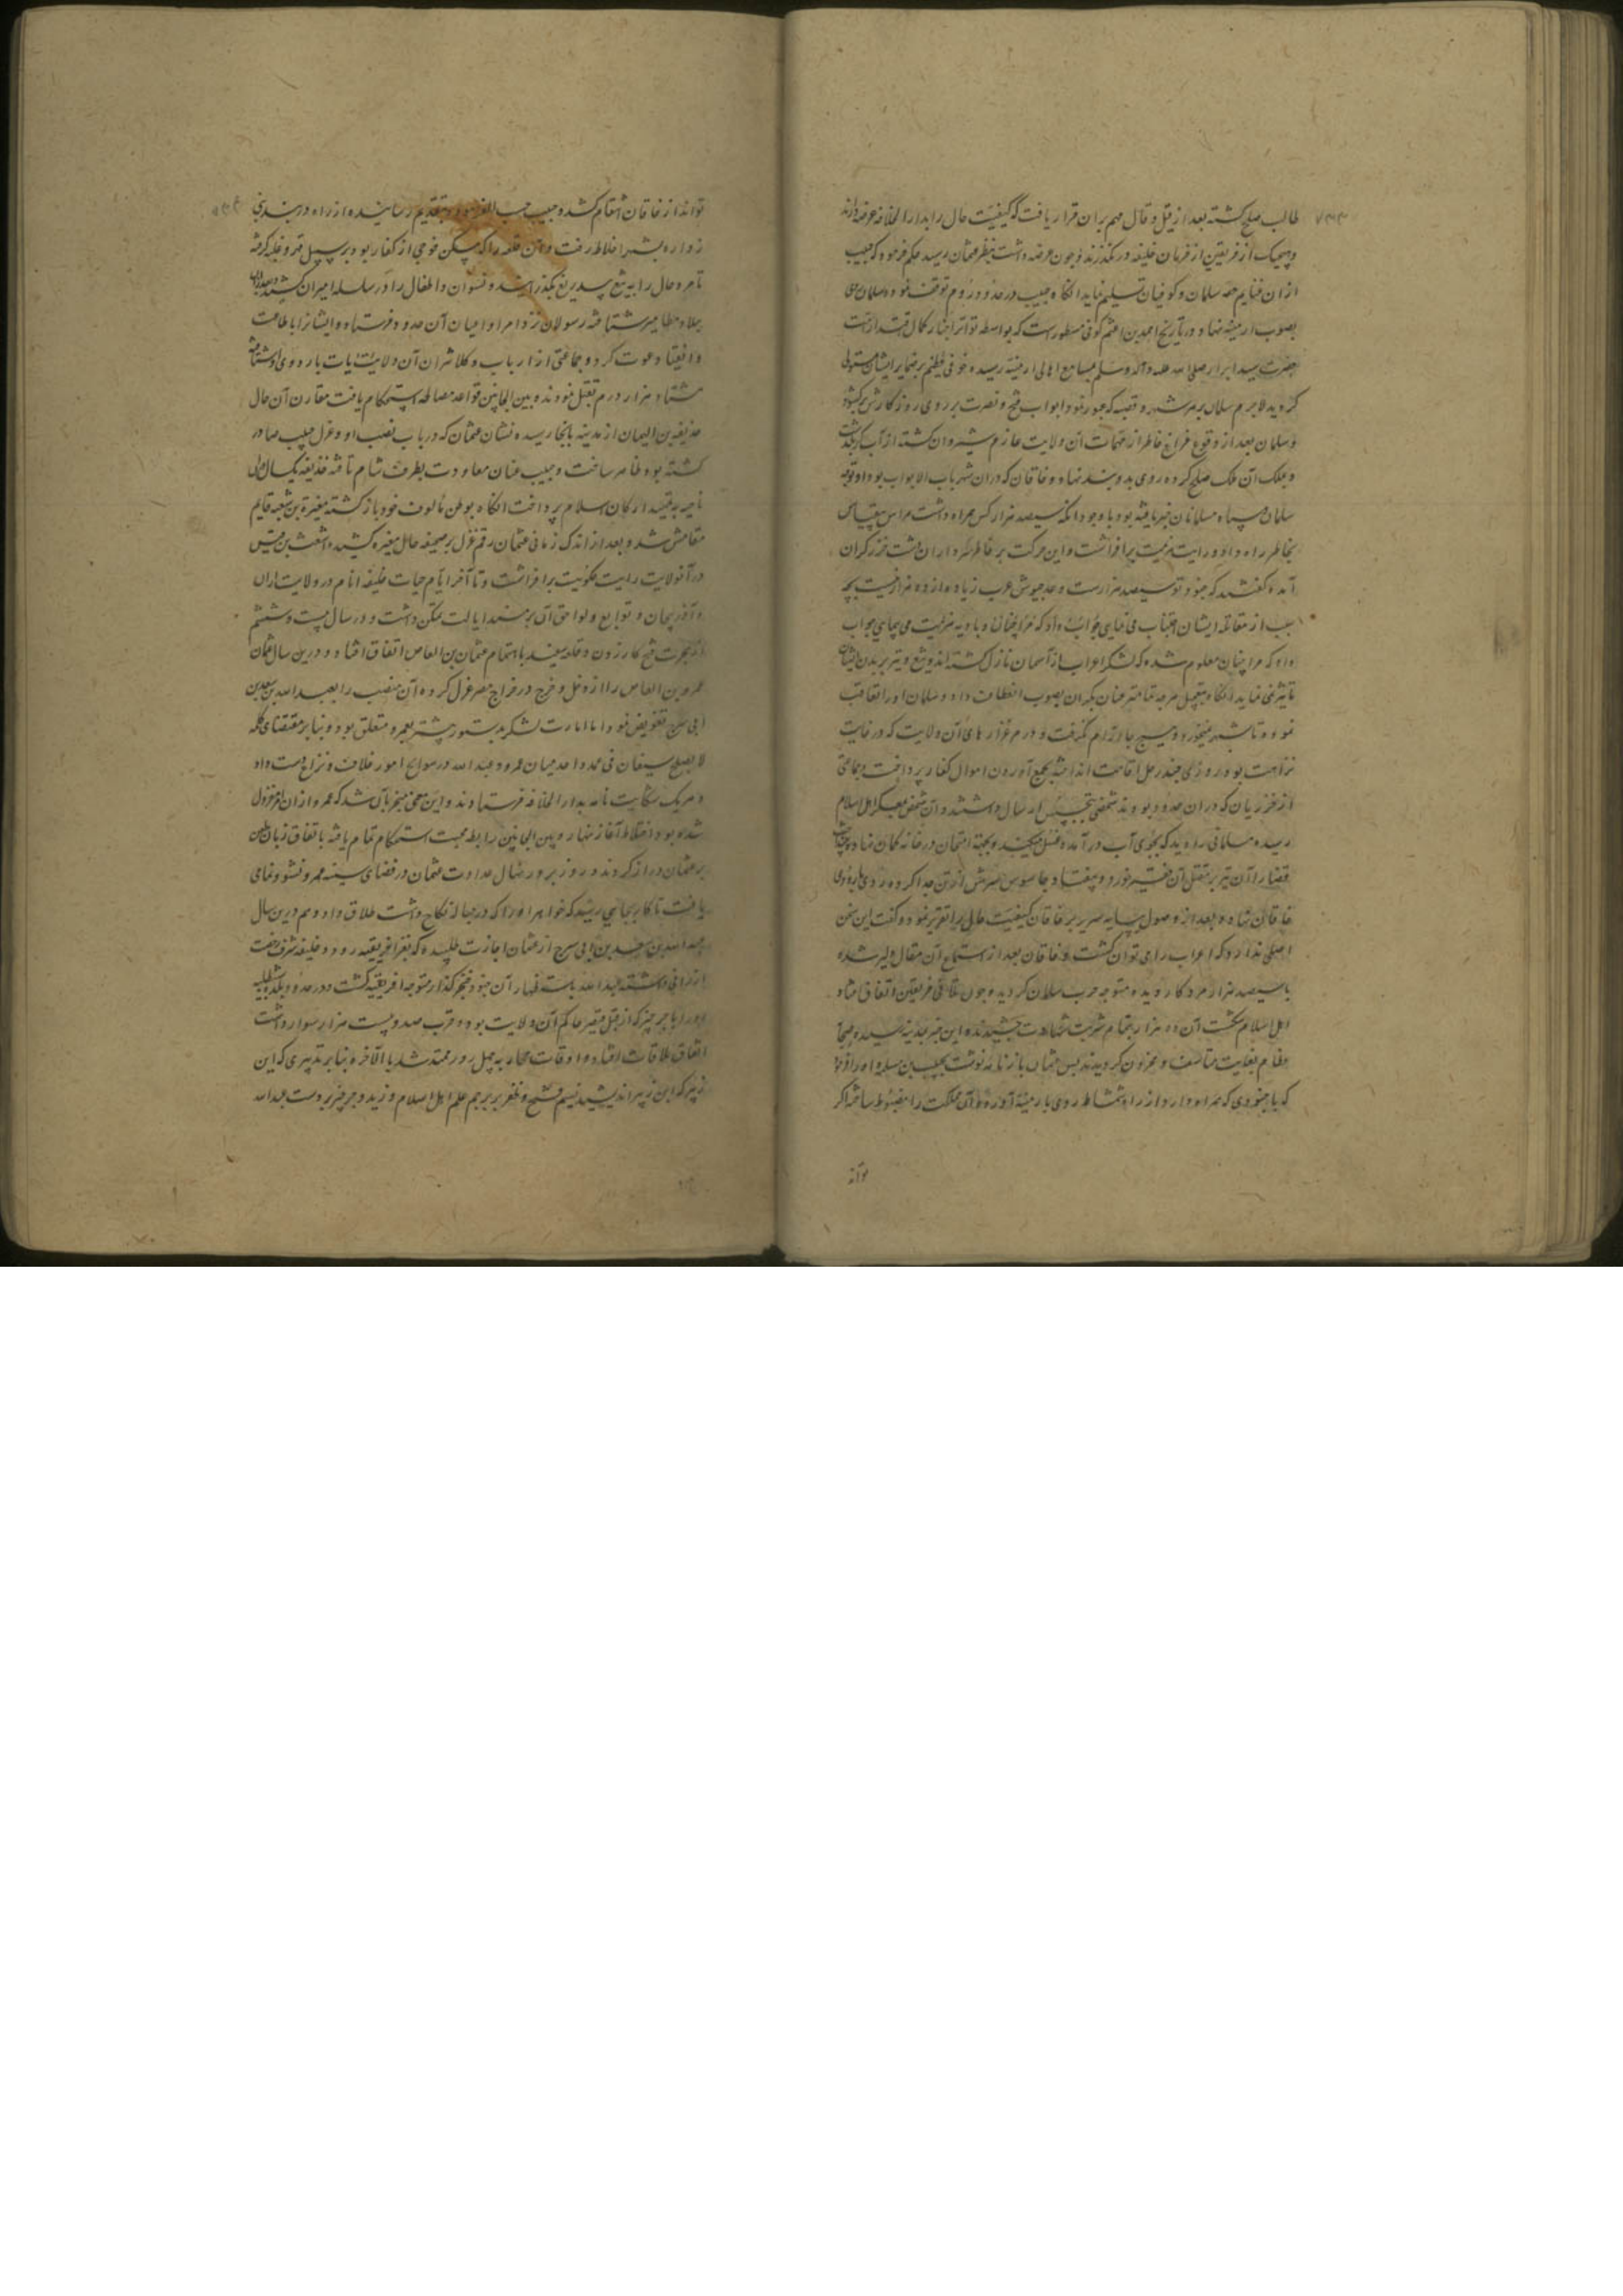 طالب صلح گشته بعد از قیل و قال مهم بران قرار یافت که کیفیت حال را بدار الخلافه عرضه دارند
و هیچیک از فریقین از فرمان خلیفه در نگذرند و چون عرضه داشت بنظر عثمان رسید حکم فرمود که حبیب
از ان غنایم حصه سلمان و کوفیان تسلیم نماید انگاه حبیب در حدود روم توقف نمود و سلمان روی
بصوب ارمنیه نهاد و در تاریخ احمد بن اعثم کوفی مسطورست که بواسطه تواتر اخبار کمال اقتدار امت
حضرت سید ابرار صلی الله علیه و آله و سلم بمسامع اهالی ارمنیه رسیده خوفی عظیم بر ضمایر ایشان مستولی
گردید لاجرم سلمان بر هر شهر و قصبه که عبور نمود ابواب فتح و نصرت بر روی روزگارش بر گشود
و سلمان بعد از وقوع فراغ خاطر از مهمات آن ولایت عازم شیروان گشته از آب کر بگذشت
و بملک آن ملک صلح کرده روی بدربند نهاد و خاقان که دران شهر باب الابواب بود از توجه
سلمان و سپاه مسلمانان خبر یافته بود با وجود آنکه سیصد هزار کس همراه داشت هراس بیقیاس
بخاطر راه داده رایت هزیمت برافراشت و این حرکت بر خاطر
آمده گفتند که جنود تو سیصد هزارست و عدد جیوش عرب زیاده از ده هزار نیست بچه
سبب از مقاتله ایشان اجتناب می نمایی جواب داد که
داد که مرا چنان معلوم شده که لشکر اعراب از آسمان نازل گشته اند و تیغ و تیر بر بدن ایشان
تاثیر نمی نماید انگاه بتعجیل هرچه تمامتر عنان یکران بصوب انعطاف داد و سلمان او را تعاقب
نمود و تا شهر هیچ جا آرام نگرفت و در مرغزار های آن ولایت که در غایت
نزاهت بود روزی چند رحل اقامت انداخته بجمع آوردن اموال کفار پرداخت و جماعتی
از خزریان که دران حدود بودند شخصی بتجسس ارسال داشتند و آن شخص بمعسکر اهل اسلام
رسیده مسلمانی را دید که بجوی آب در آمده غسل میکند و بجهة امتحان در خانه کمان نهاده
قضا را آن تیر بر مقتل آن فقیر خورد و بیفتاد و جاسوس سرش از تن جدا کرده روی باردوی
خاقان نهاده بعد از وصول بپایه سریر بر خاقان کیفیت حال را تقریر نمود و گفت این سخن
اصلی ندارد که اعراب را نمی توان کشت و خاقان بعد از استماع آن مقال دلیر شده
با سیصد هزار مرد کار دیده متوجه حرب سلمان گردید و چون تلاقی فریقین اتفاق افتاد
اهل اسلام شکست آن ده هزار بتمام شربت شهادت چشیدند و این خبر بمدینه رسیده صحابه
عظام بغایت متاسف و محزون گردیدند پس عثمان باز نامه نوشت بحبیب بن مسلمه و او را فرمود
که با جنودی که همراه دارد از راه شمشاط روی بارمنیه آورد و آن مملکت را مضبوط ساخته اگر
تواند
تواند از خاقان انتقام کشد و حبیب حسب الفرموده بتقدیم رسانیده از راه دربندی
زواره بشهر اخلاط رفت و آن قلعه را که مسکن فوجی از کفار بود بر سبیل قهر و غلبه گرفته
تمام رجال را به تیغ بیدریغ بگذرانید و نسوان و اطفال را در سلسله اسیران کشید و بعد ازان
شتافته رسولان نزد امرا و اعیان آن حدود فرستاد و ایشانرا باطاعت
و انقیاد دعوت کرد و جماعتی از ارباب و کلانتران آن ولایت باردوی او شتافته
هشتاد هزار درم تقبل نمودند و بین الجانبین قواعد مصالحه استحکام یافت مقارن آن حال
حذیفة بن الیمان از مدینه بانجا رسیده نشان عثمان که در باب نصب او و عزل حبیب صادر
گشته بود ظاهر ساخت و حبیب عنان معاودت بطرف شام تافته حذیفه یکسال دران
ناحیه بتشیید ارکان اسلام پرداخت انگاه بوطن مألوف خود باز گشته مغیرة بن شعبه قایم
مقامش شد و بعد از اندک زمانی عثمان رقم عزل بر صحیفه حال مغیره کشیده اشعث بن قیس
در آن ولایت رایت حکومت برافراشت و تا آخر ایام حیات خلیفه انام در ولایت اران
و آذربیجان و توابع و لواحق آن بر مسند ایالت تمکن داشت و در سال بیست و ششم
از هجرت فتح کازرون و قلعه سفید باهتمام عثمان بن ابی العاص اتفاق افتاد و درین سال عثمان
عمرو بن العاص را از دخل و خرج در خراج مصر عزل کرده آن منصب را بعبد الله بن سعد بن
ابی سرح تفویض نمود اما امارت لشکر بدستور پیشتر بعمرو متعلق بود و بنابر مقتضای کلمه
لا یصلح سیفان فی غمد واحد میان عمرو و عبد الله در سوانح امور خلاف و نزاع دست داد
و هر یک شکایت نامه بدار الخلافه فرستادند و این معنی منجر بآن شد که عمرو از ان امر معزول
شده بود اختلاط آغاز نهاد و بین الجانبین رابطه محبت استحکام تمام یافته باتفاق زبان طعن
بر عثمان دراز کردند و روز بروز نهال عداوت عثمان در فضای سینه عمرو نشو و نما می
یافت تا کار بجایی رسید که خواهر او را که در حباله نکاح داشت طلاق داد و هم درین سال
عبد الله بن سعد بن ابی سرح از عثمان اجازت طلبیده که بغزا افریقیه رود و خلیفه شرف رخصت
ارزانی داشته عبد الله باستظهار آن جنود ظفر گذار متوجه افریقیه گشت و در حدود بلده
او را با جرجیر که از قبل قیصر حاکم آن ولایت بود و قرب صد و بیست هزار سوار داشت
اتفاق ملاقات افتاده اوقات محاربه بچهل روز ممتد شد بالآخره بنابر تدبیری که ابن
زبیر اندیشید نسیم فتح و ظفر بر پرچم علم اهل اسلام وزید و جرجیر بر دست عبد الله